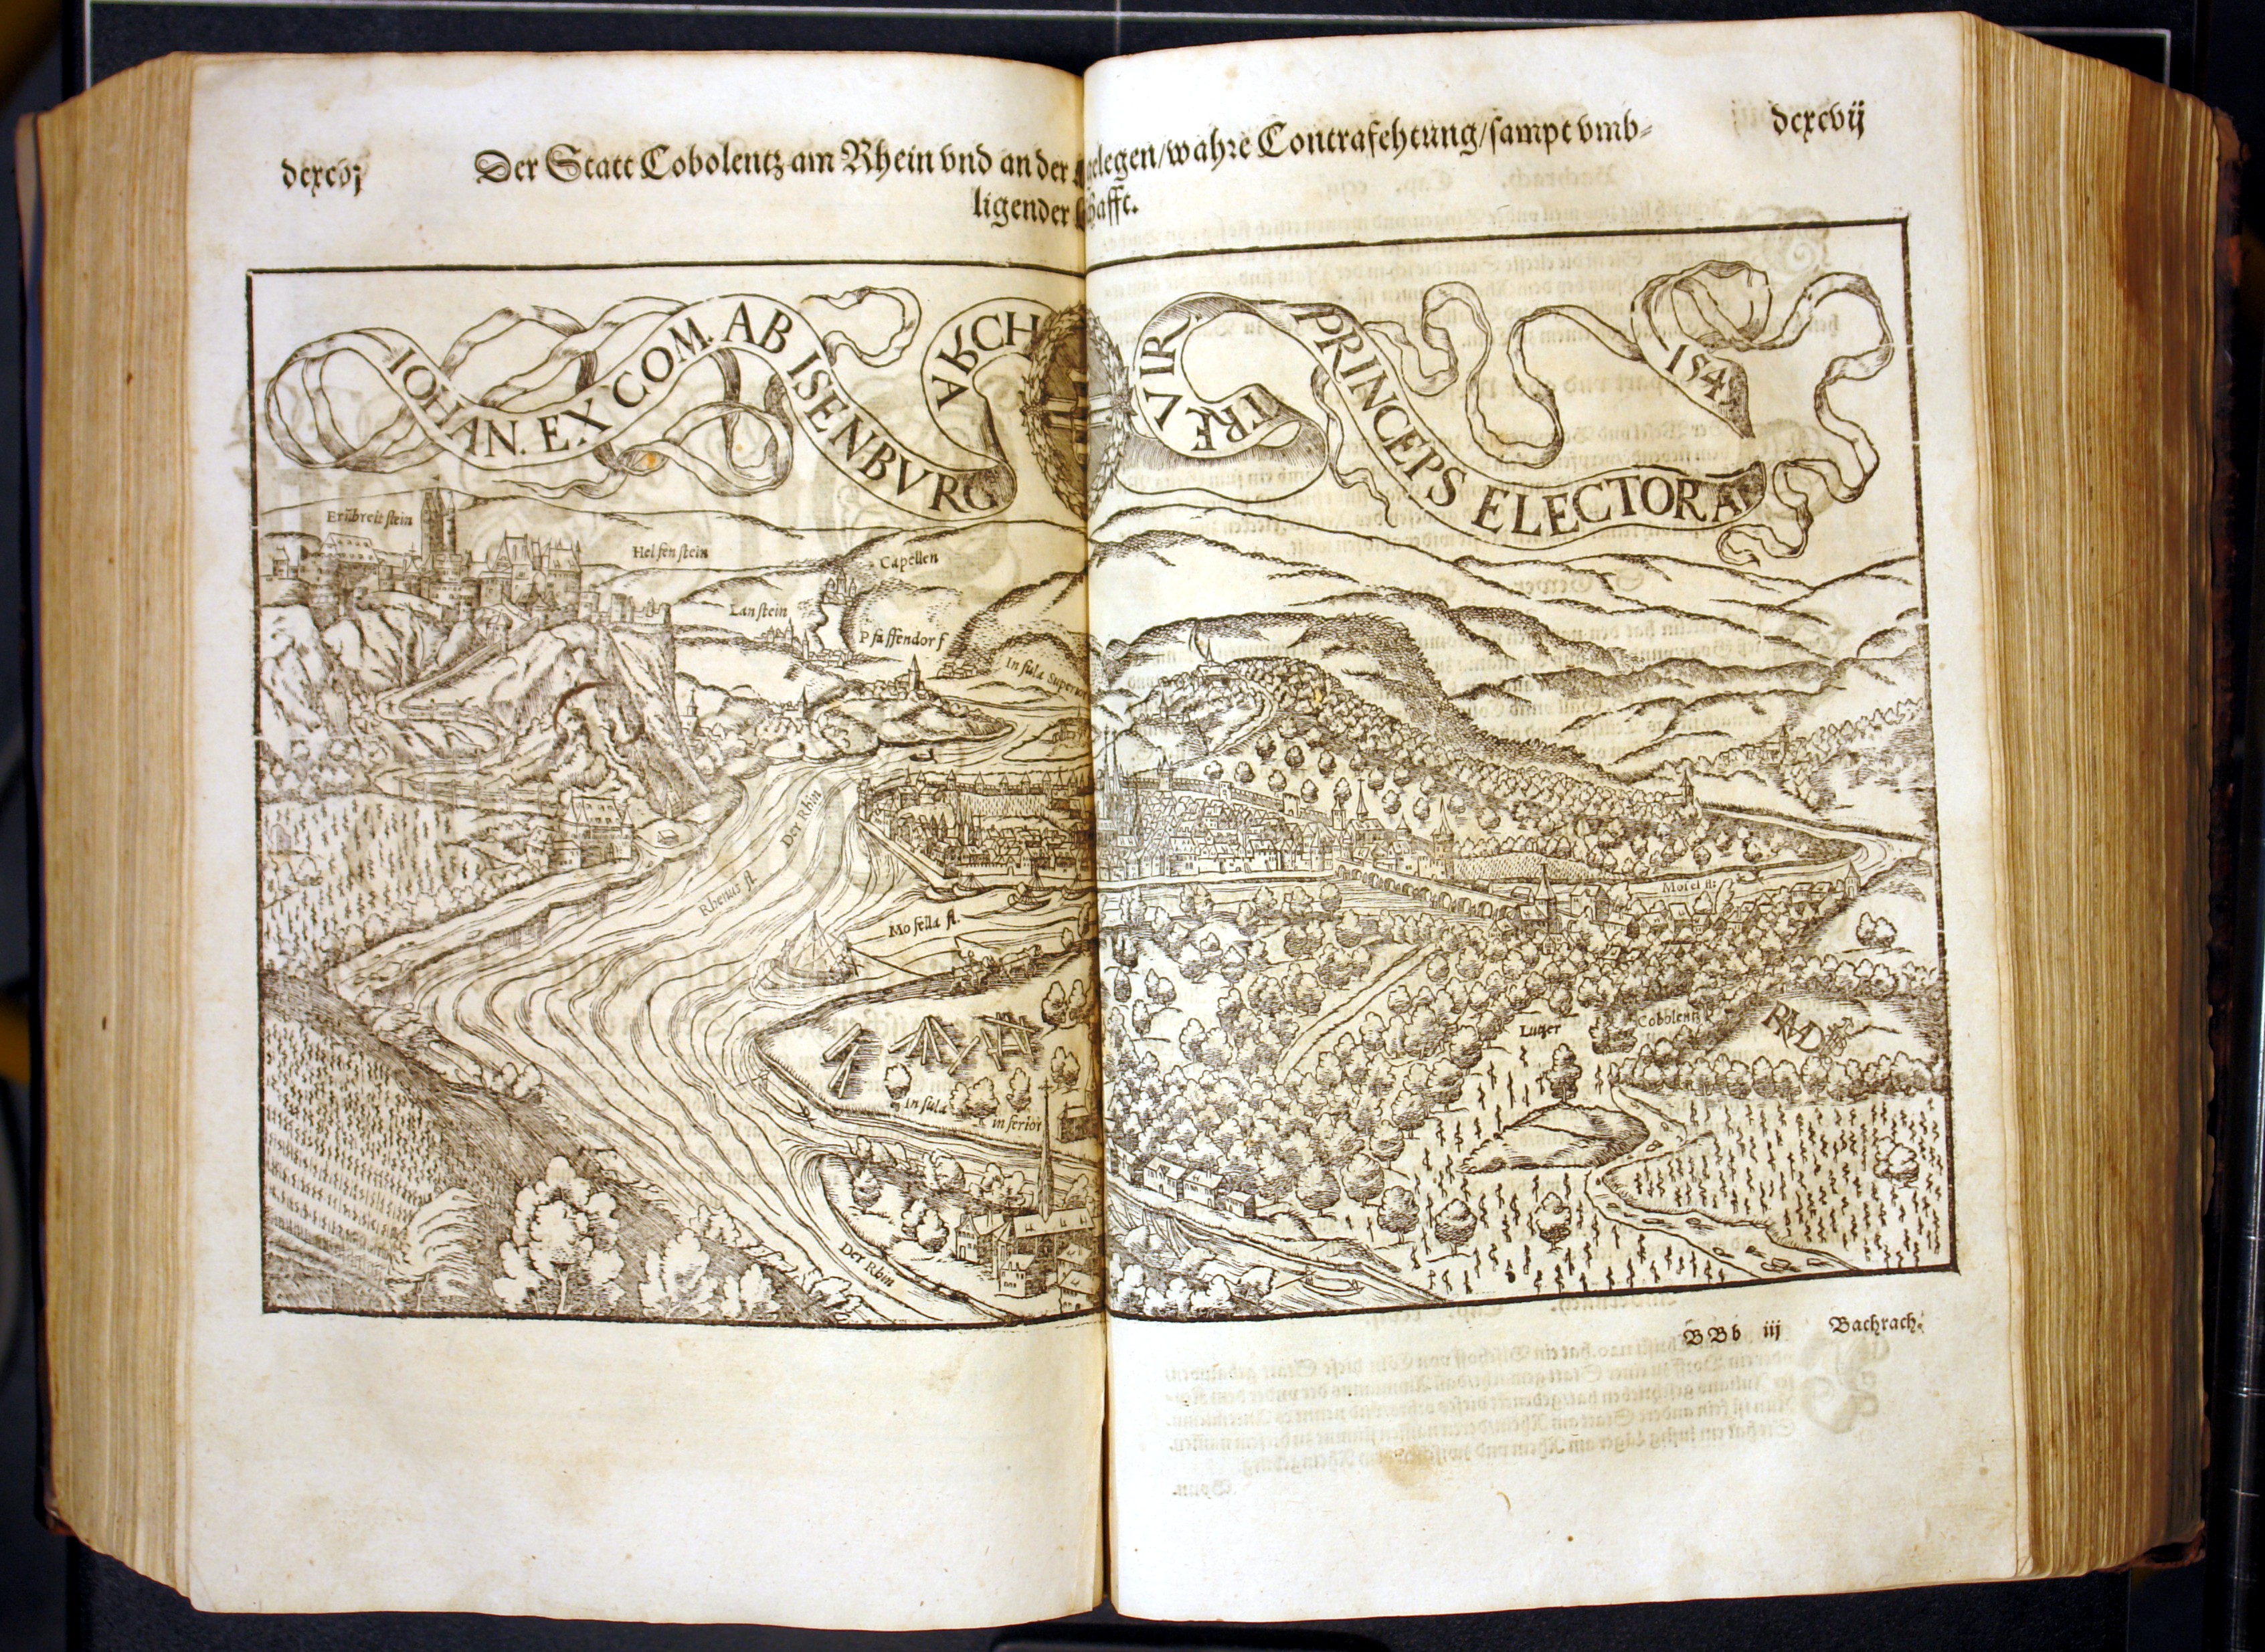 dcxcvj
Der Statt Cobolentz am Rhein vnd an der gelegen/wahre Contrafehtung/sampt vmb-
dcxcvij
ligender hafft.
IOHAN. EX COM. AB ISENBVRG ARCH TREVIR PRINCEPS ELECTORA 1549
Ernbreitstein
Helfenstein
Capellen
Lanstein
Pfaffendorf
Insula Superior
Der Rhin
Rhenus fl.
Mosella fl.
Mosel fl:
Lutzer
Cobolentz
RMD
Insula
inferior
Der Rhin
BBb iij
Bachrach.